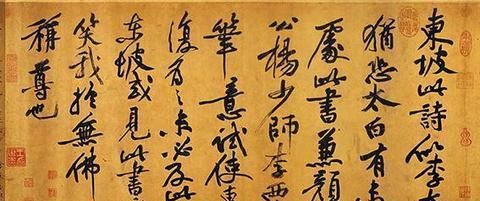 東坡此詩似李
猶恐太白有未
處此書兼顏
公楊少師李西
筆意試使東
復為之未必及此
東坡或見此書
笑我於無佛
稱尊也